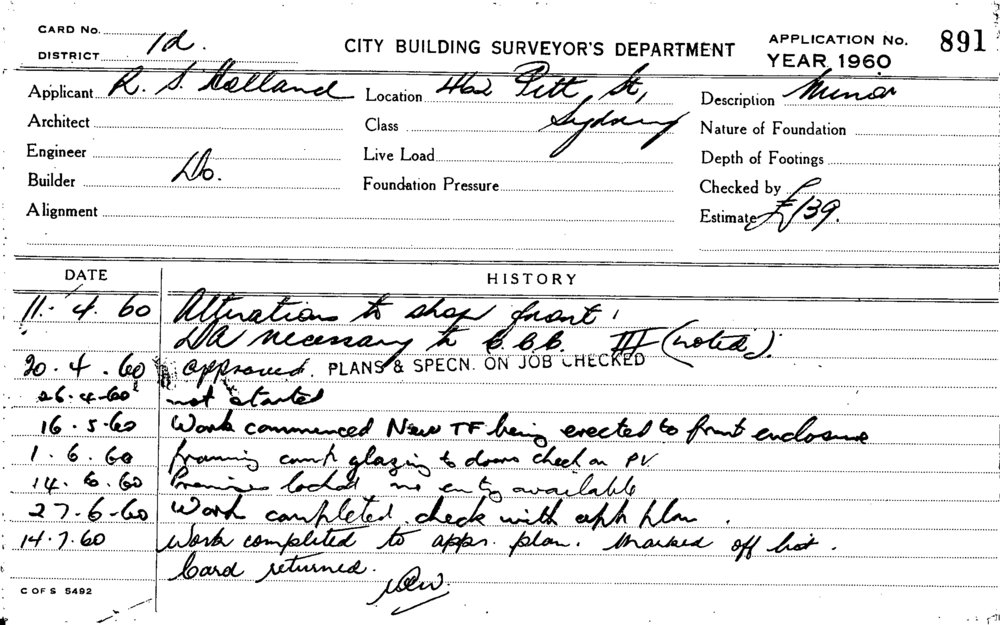 CARD No.
DISTRICT 1d.
CITY BUILDING SURVEYOR'S DEPARTMENT
APPLICATION No. 891
YEAR 1960
Applicant R. S. Holland
Location 462 Pitt St,
Sydney
Description Minor
Architect
Class
Nature of Foundation
Engineer
Live Load
Depth of Footings
Builder Do.
Foundation Pressure
Checked by
Alignment
Estimate £139.
DATE HISTORY
11. 4. 60 Alterations to shop front.
DA necessary to III (noted).
20. 4. 60 approved. PLANS & SPECN. ON JOB CHECKED
26. 4. 60 not started
16. 5. 60 Work commenced New TF being erected to front enclosure
1. 6. 60 framing comp glazing to doors check on PV.
14. 6. 60 Premises locked no entry available
27. 6. 60 Work completed. check with plan.
14. 7. 60 Work completed to appr. plan. Marked off list.
Card returned.
C OF S 5492